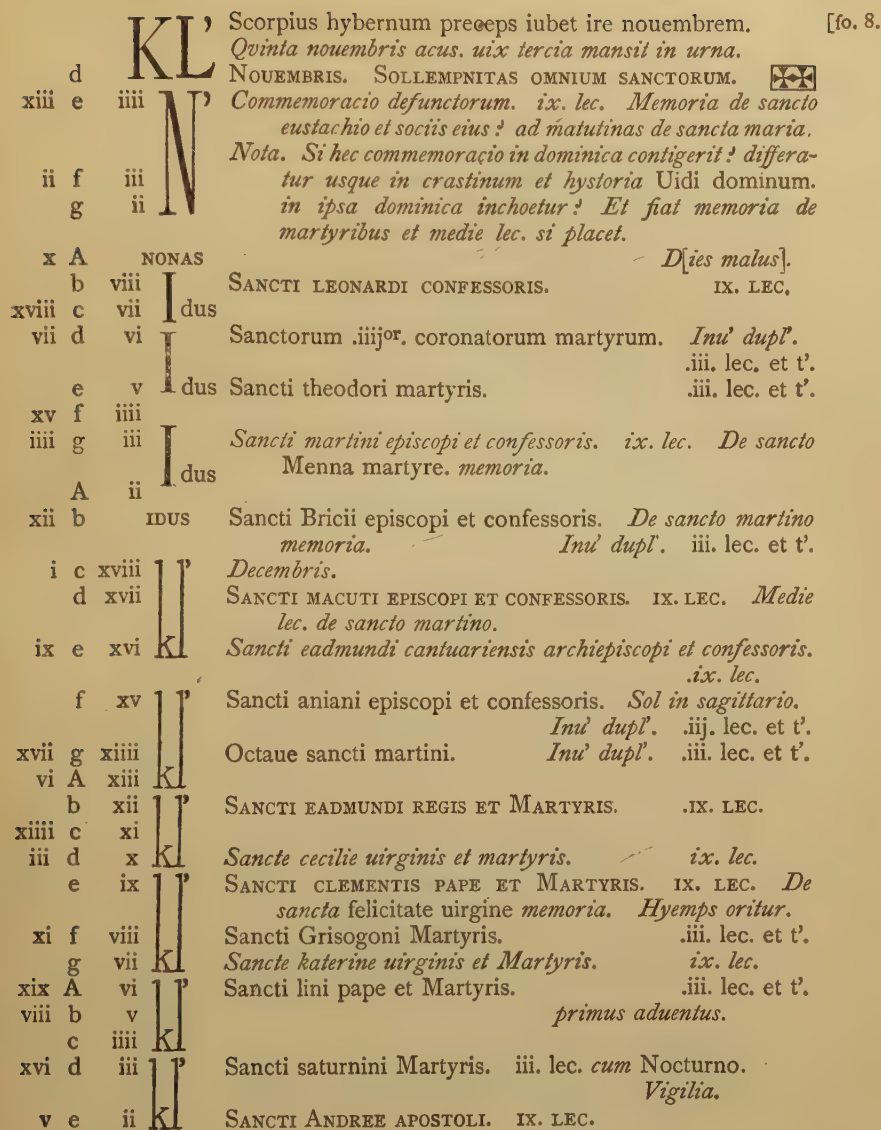 KL' Scorpius hybernum preceps iubet ire nouembrem. [fo. 8.
Qvinta nouembris acus. uix tercia mansit in urna.
d NOUEMBRIS. SOLLEMPNITAS OMNIUM SANCTORUM.
xiii e iiii N' Commemoracio defunctorum. ix. lec. Memoria de sancto
eustachio et sociis eius : ad matutinas de sancta maria.
Nota. Si hec commemoracio in dominica contigerit : differa-
ii f iii tur usque in crastinum et hystoria Uidi dominum.
g ii in ipsa dominica inchoetur : Et fiat memoria de
martyribus et medie lec. si placet.
x A NONAS D[ies malus].
b viii SANCTI LEONARDI CONFESSORIS. IX. LEC.
xviii c vii Idus
vii d vi Sanctorum .iiijor. coronatorum martyrum. Inu' dupl'.
.iii. lec. et t'.
e v Idus Sancti theodori martyris. .iii. lec. et t'.
xv f iiii
iiii g iii Sancti martini episcopi et confessoris. ix. lec. De sancto
Idus Menna martyre. memoria.
A ii
xii b IDUS Sancti Bricii episcopi et confessoris. De sancto martino
memoria. Inu' dupl'. iii. lec. et t'.
i c xviii Kl' Decembris.
d xvii SANCTI MACUTI EPISCOPI ET CONFESSORIS. IX. LEC. Medie
lec. de sancto martino.
ix e xvi Sancti eadmundi cantuariensis archiepiscopi et confessoris.
.ix. lec.
f xv Kl' Sancti aniani episcopi et confessoris. Sol in sagittario.
Inu' dupl'. .iij. lec. et t'.
xvii g xiiii Octaue sancti martini. Inu' dupl'. .iii. lec. et t'.
vi A xiii
b xii Kl' SANCTI EADMUNDI REGIS ET MARTYRIS. .IX. LEC.
xiiii c xi
iii d x Sancte cecilie uirginis et martyris. ix. lec.
e ix Kl' SANCTI CLEMENTIS PAPE ET MARTYRIS. IX. LEC. De
sancta felicitate uirgine memoria. Hyemps oritur.
xi f viii Sancti Grisogoni Martyris. .iii. lec. et t'.
g vii Sancte katerine uirginis et Martyris. ix. lec.
xix A vi Kl' Sancti lini pape et Martyris. .iii. lec. et t'.
viii b v primus aduentus.
c iiii
xvi d iii Kl' Sancti saturnini Martyris. iii. lec. cum Nocturno.
Vigilia.
v e ii SANCTI ANDREE APOSTOLI. IX. LEC.